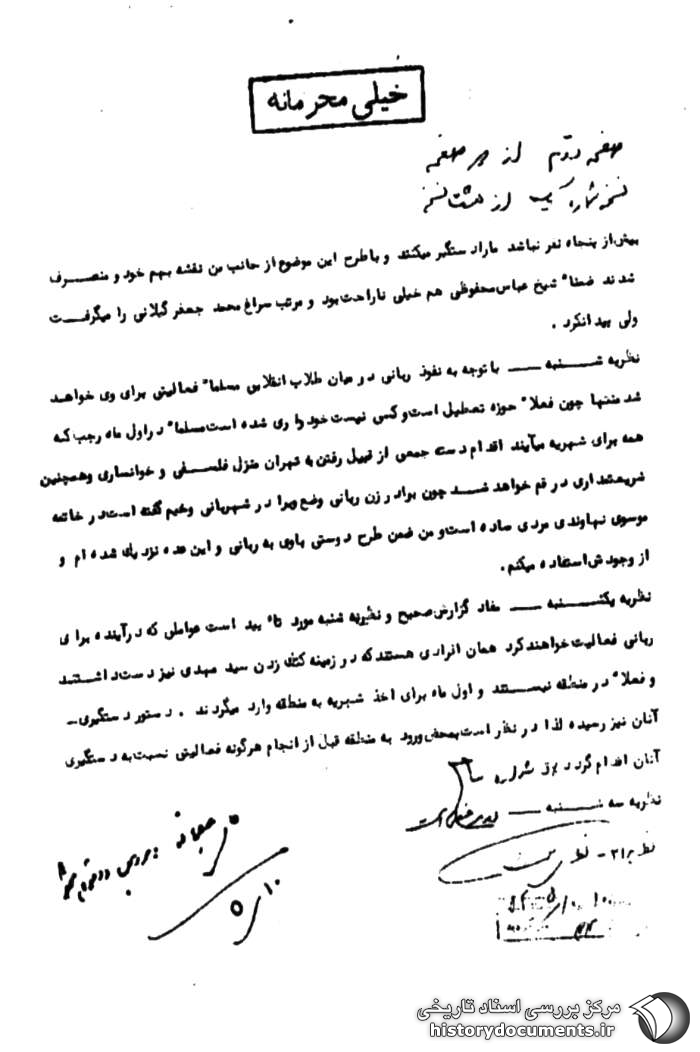 خیلی محرمانه
صفحه دوم از صفحه
نسخه شماره یک از هشت نسخه
بیش از پنجاه نفر نباشد مارا دستگیر میکنند و با طرح این موضوع از جانب من نقشه بهم خود و منصرف
شدند ضمناً شیخ عباس محفوظی هم خیلی ناراحت بود و مرتب سراغ محمد جعفر گیلانی را میگرفت
ولی پیدا نکرد .
نظریه شنبه ــ با توجه به نفوذ ربانی در میان طلاب انقلابی مسلماً فعالیتی برای وی خواهد
شد منتها چون فعلاً حوزه تعطیل است و کسی نیست خودداری شده است مسلماً در اول ماه رجب که
همه برای شهریه میآیند اقدام دسته جمعی از قبیل رفتن به تهران منزل فلسفی و خوانساری و همچنین
شریعتمداری در قم خواهد شد چون برادر زن ربانی وضع ویرا در شهربانی وخیم گفته است در خاتمه
موسوی نهاوندی مردی ساده است و من ضمن طرح دوستی باوی به ربانی و این عده نزدیک شده ام و
از وجودش استفاده میکنم .
نظریه یکشنبه ــ مفاد گزارش صحیح و نظریه شنبه مورد تأیید است عواملی که در آینده برای
ربانی فعالیت خواهند کرد همان افرادی هستند که در زمینه کتک زدن سید مهدی نیز دست داشتند
و فعلاً در منطقه نیستند و اول ماه برای اخذ شهریه به منطقه وارد میگردند . دستور دستگیری ــ
آنان نیز رسیده لذا در نظر است بمحض ورود به منطقه قبل از انجام هرگونه فعالیتی نسبت به دستگیری
آنان اقدام گردد
نظریه سه شنبه ــ
۱۰/۵
مرکز بررسی اسناد تاریخی
historydocuments.ir